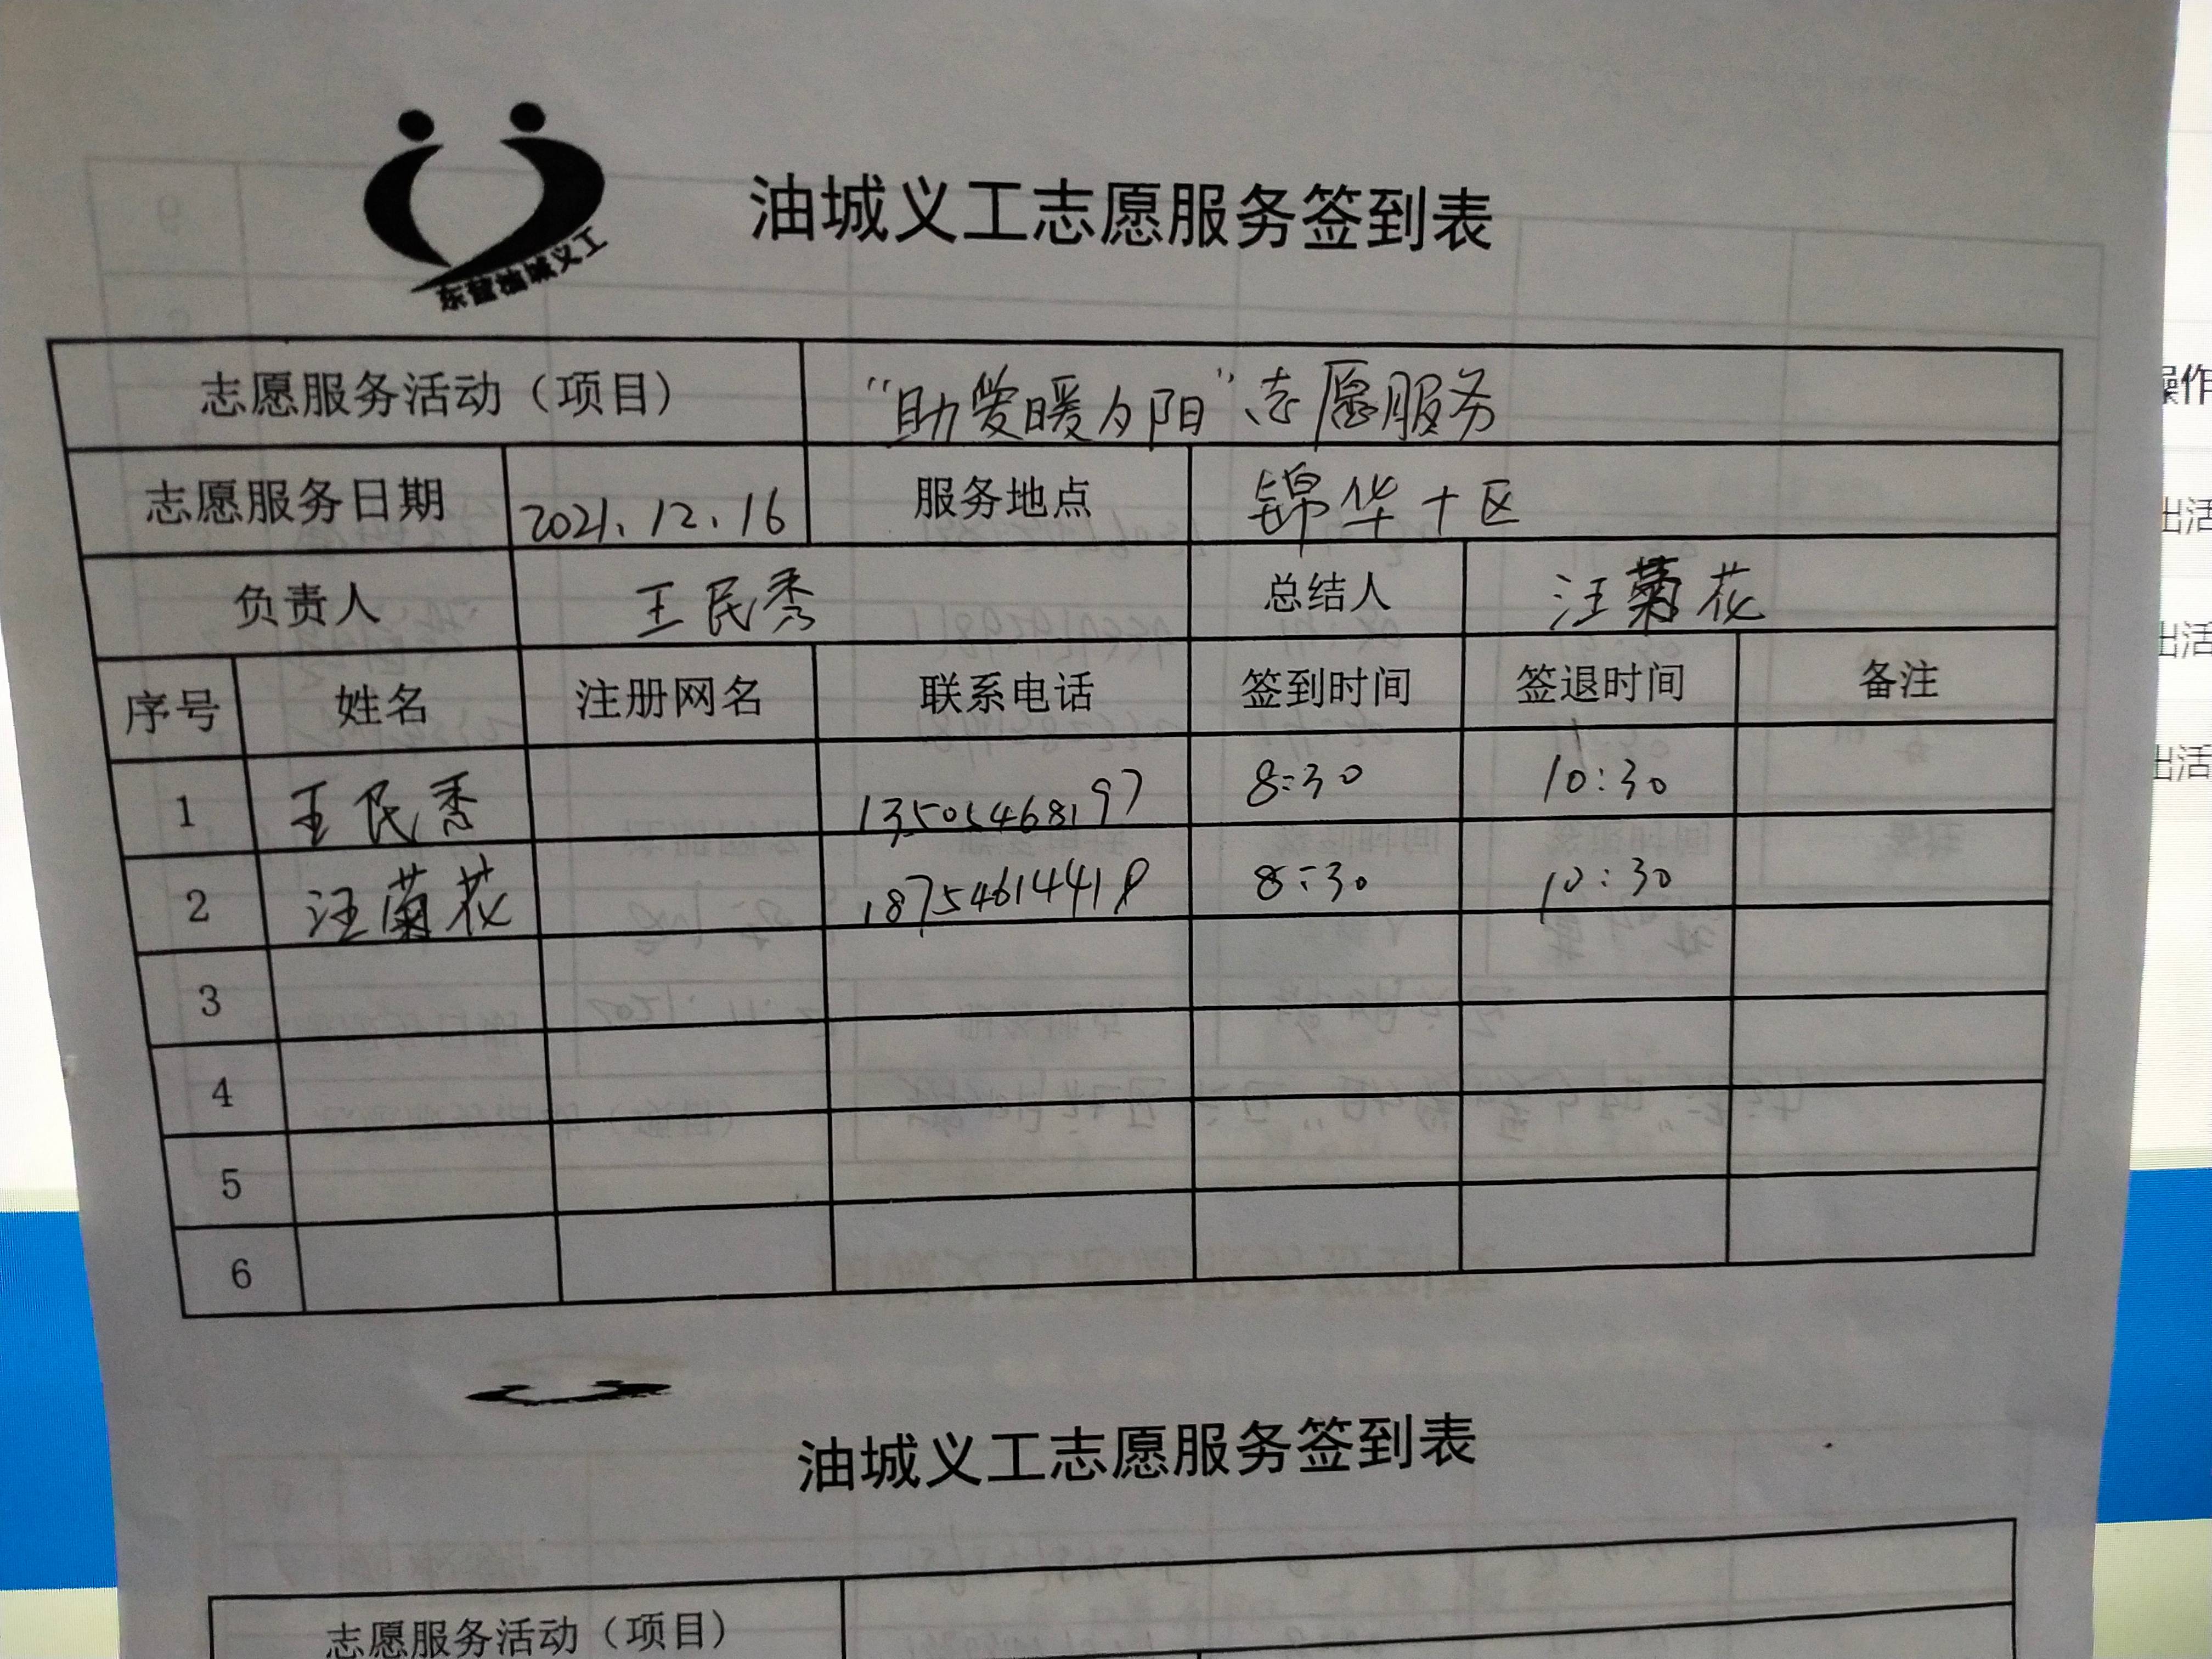 东营油城义工
油城义工志愿服务签到表
志愿服务活动（项目） “助爱暖夕阳”志愿服务
志愿服务日期 2021.12.16 服务地点 锦华十区
负责人 王民秀 总结人 汪菊花
序号 姓名 注册网名 联系电话 签到时间 签退时间 备注
1 王民秀 13505468197 8:30 10:30
2 汪菊花 8:30 10:30
3
4
5
6
油城义工志愿服务签到表
志愿服务活动（项目）
操作
出活
出活
出活